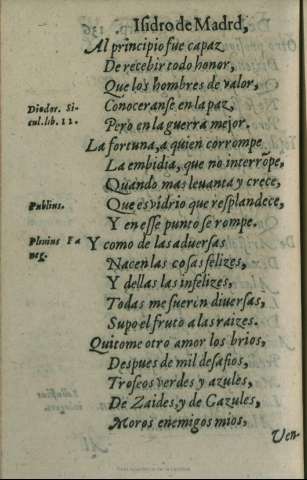 Isidro de Madrd,
Al principio fue capaz
De recebir todo honor,
Que los hombres de valor,
Diodor. Si-
cul. lib. 11.
Conoceranse en la paz,
Pero en la guerra mejor.
La fortuna, a quien corrompe
La embidia, que no interrõpe,
Quando mas leuanta y crece,
Publius.
Que es vidrio que resplandece,
Y en esse punto se rompe.
Plinius Pa
neg.
Y como de las aduersas
Nacen las cosas felizes,
Y dellas las infelizes,
Todas me fueron diuersas,
Supo el fruto a las raizes.
Quitome otro amor los brios,
Despues de mil desafios,
Trofeos verdes y azules,
De Zaides, y de Gazules,
Moros enemigos mios,
Ven-